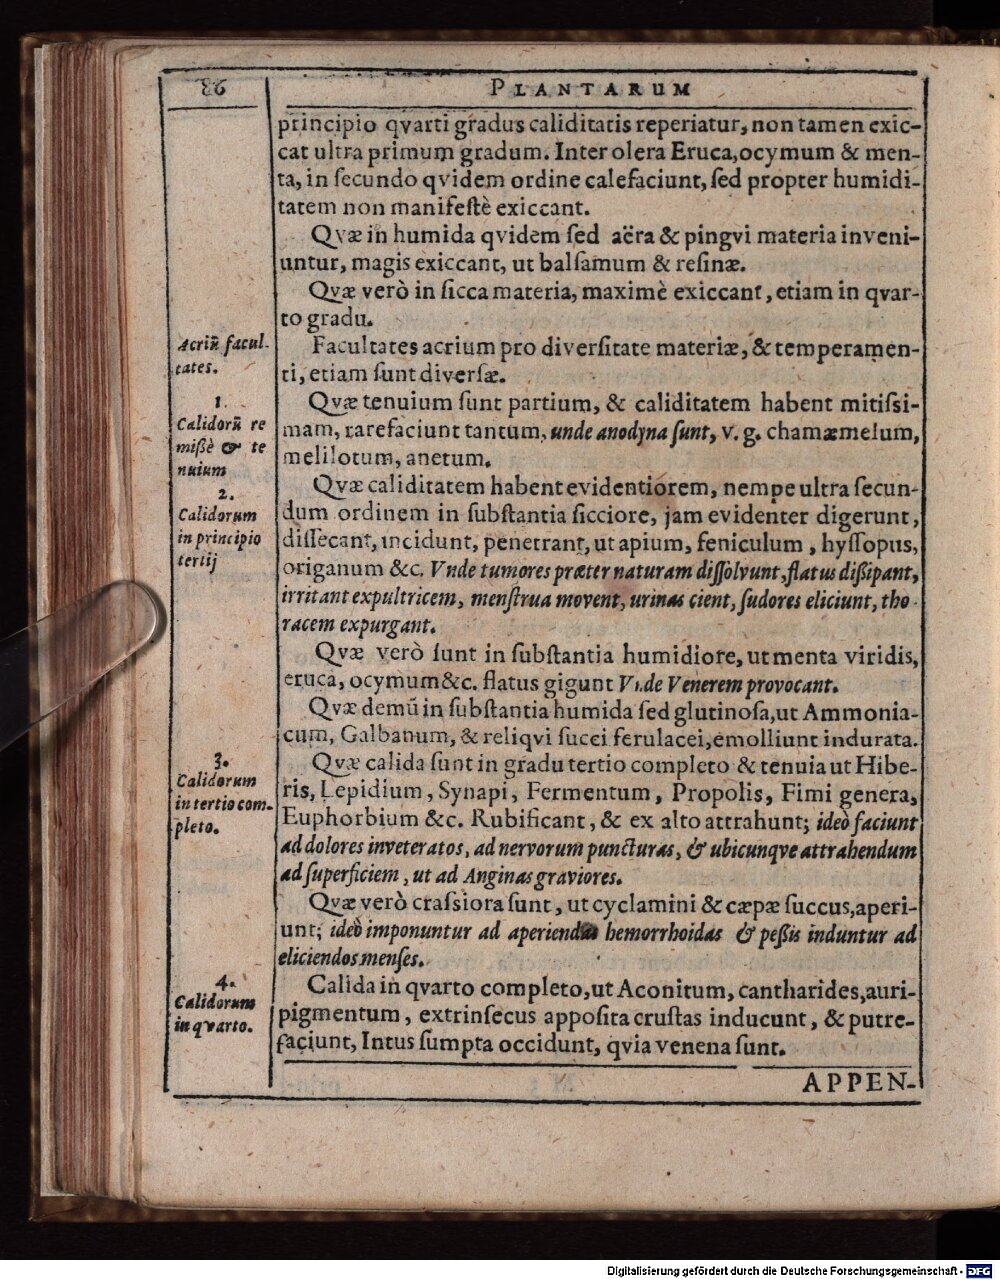 86
PLANTARUM
principio qvarti gradus caliditatis reperiatur, non tamen exic-
cat ultra primum gradum. Inter olera Eruca, ocymum & men-
ta, in ſecundo qvidem ordine calefaciunt, ſed propter humidi-
tatem non manifeſtè exiccant.
Qvæ in humida qvidem ſed aëra & pingvi materia inveni-
untur, magis exiccant, ut balſamum & reſinæ.
Qvæ verò in ſicca materia, maximè exiccant, etiam in qvar-
to gradu.
Acriū facul-
tates.
Facultates acrium pro diverſitate materiæ, & temperamen-
ti, etiam ſunt diverſæ.
1.
Calidorū re
miſſè & te
nuium
Qvæ tenuium ſunt partium, & caliditatem habent mitiſsi-
mam, rarefaciunt tantum, unde anodyna ſunt, v. g. chamæmelum,
melilotum, anetum.
2.
Calidorum
in principio
tertij
Qvæ caliditatem habent evidentiorem, nempe ultra ſecun-
dum ordinem in ſubſtantia ſicciore, jam evidenter digerunt,
diſſecant, incidunt, penetrant, ut apium, feniculum, hyſſopus,
origanum &c. Vnde tumores præter naturam diſſolvunt, flatus diſſipant,
irritant expultricem, menſtrua movent, urinas cient, ſudores eliciunt, tho-
racem expurgant.
Qvæ verò ſunt in ſubſtantia humidiore, ut menta viridis,
eruca, ocymum &c. flatus gigunt Vnde Venerem provocant.
Qvæ demū in ſubſtantia humida ſed glutinoſa, ut Ammonia-
cum, Galbanum, & reliqvi ſucci ferulacei, emolliunt indurata.
3.
Calidorum
in tertio com-
pleto.
Qvæ calida ſunt in gradu tertio completo & tenuia ut Hibe-
ris, Lepidium, Synapi, Fermentum, Propolis, Fimi genera,
Euphorbium &c. Rubificant, & ex alto attrahunt; ideò faciunt
ad dolores inveteratos, ad nervorum puncturas, & ubicunqve attrahendum
ad ſuperficiem, ut ad Anginas graviores.
Qvæ verò craſsiora ſunt, ut cyclamini & cæpæ ſuccus, aperi-
unt; ideò imponuntur ad aperiendas hemorrhoidas & peſſis induntur ad
eliciendos menſes.
4.
Calidorum
in qvarto.
Calida in qvarto completo, ut Aconitum, cantharides, auri-
pigmentum, extrinſecus appoſita cruſtas inducunt, & putre-
faciunt, Intus ſumpta occidunt, qvia venena ſunt.
APPEN-
Digitalisierung gefördert durch die Deutsche Forschungsgemeinschaft - DFG